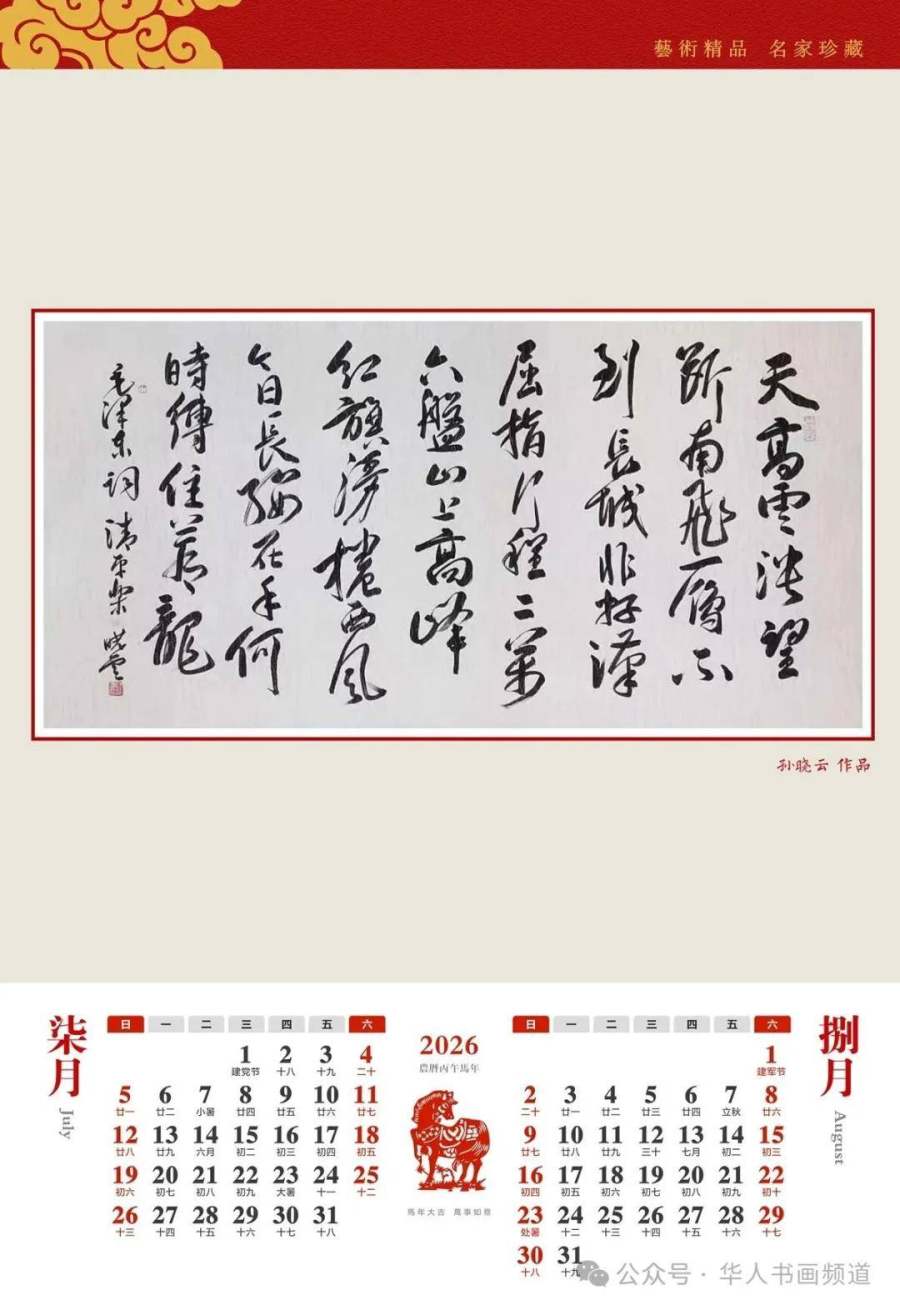 藝術精品 名家珍藏
天高雲淡望
斷南飛雁不
到長城非好漢
屈指行程二萬
六盤山上高峰
紅旗漫捲西風
今日長纓在手何
時縛住蒼龍
毛澤東詞 清平樂 曉雲
孙晓云 作品
柒月
July
日 一 二 三 四 五 六
1 2 3 4
建党节 十八 十九 二十
5 6 7 8 9 10 11
廿一 廿二 小暑 廿四 廿五 廿六 廿七
12 13 14 15 16 17 18
廿八 廿九 六月 初二 初三 初四 初五
19 20 21 22 23 24 25
初六 初七 初八 初九 大暑 十一 十二
26 27 28 29 30 31
十三 十四 十五 十六 十七 十八
2026
農曆丙午馬年
馬年大吉 萬事如意
日 一 二 三 四 五 六
1
建军节
2 3 4 5 6 7 8
二十 廿一 廿二 廿三 廿四 立秋 廿六
9 10 11 12 13 14 15
廿七 廿八 廿九 三十 七月 初二 初三
16 17 18 19 20 21 22
初四 初五 初六 初七 初八 初九 初十
23 24 25 26 27 28 29
处暑 十二 十三 十四 十五 十六 十七
30 31
十八 十九
捌月
August
公众号 · 华人书画频道